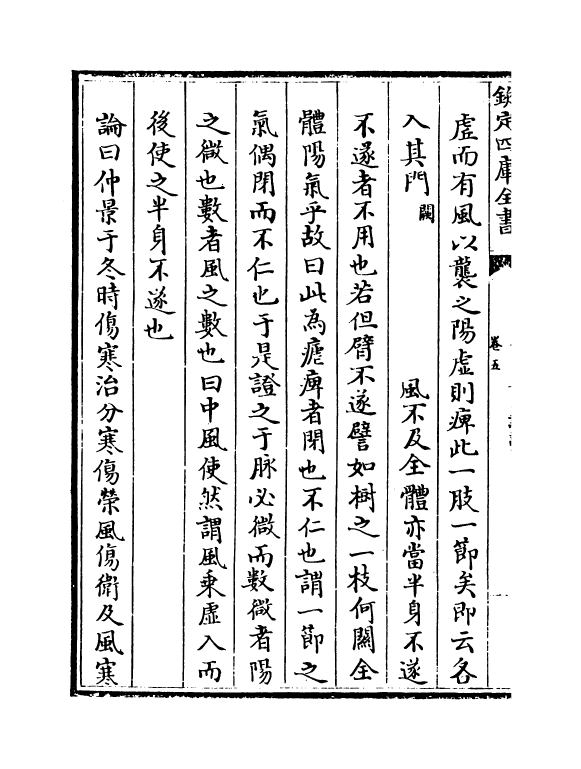 欽定四庫全書
卷五
虛而有風以襲之陽虛則痺此一肢一節矣即云各
入其門闕 風不及全體亦當半身不遂
不遂者不用也若但臂不遂譬如樹之一枝何關全
體陽氣乎故曰此為瘧痺者閉也不仁也謂一節之
氣偶閉而不仁也于是證之于脉必微而數微者陽
之微也數者風之數也曰中風使然謂風乘虛入而
後使之半身不遂也
論曰仲景于冬時傷寒治分寒傷榮風傷衛及風寒